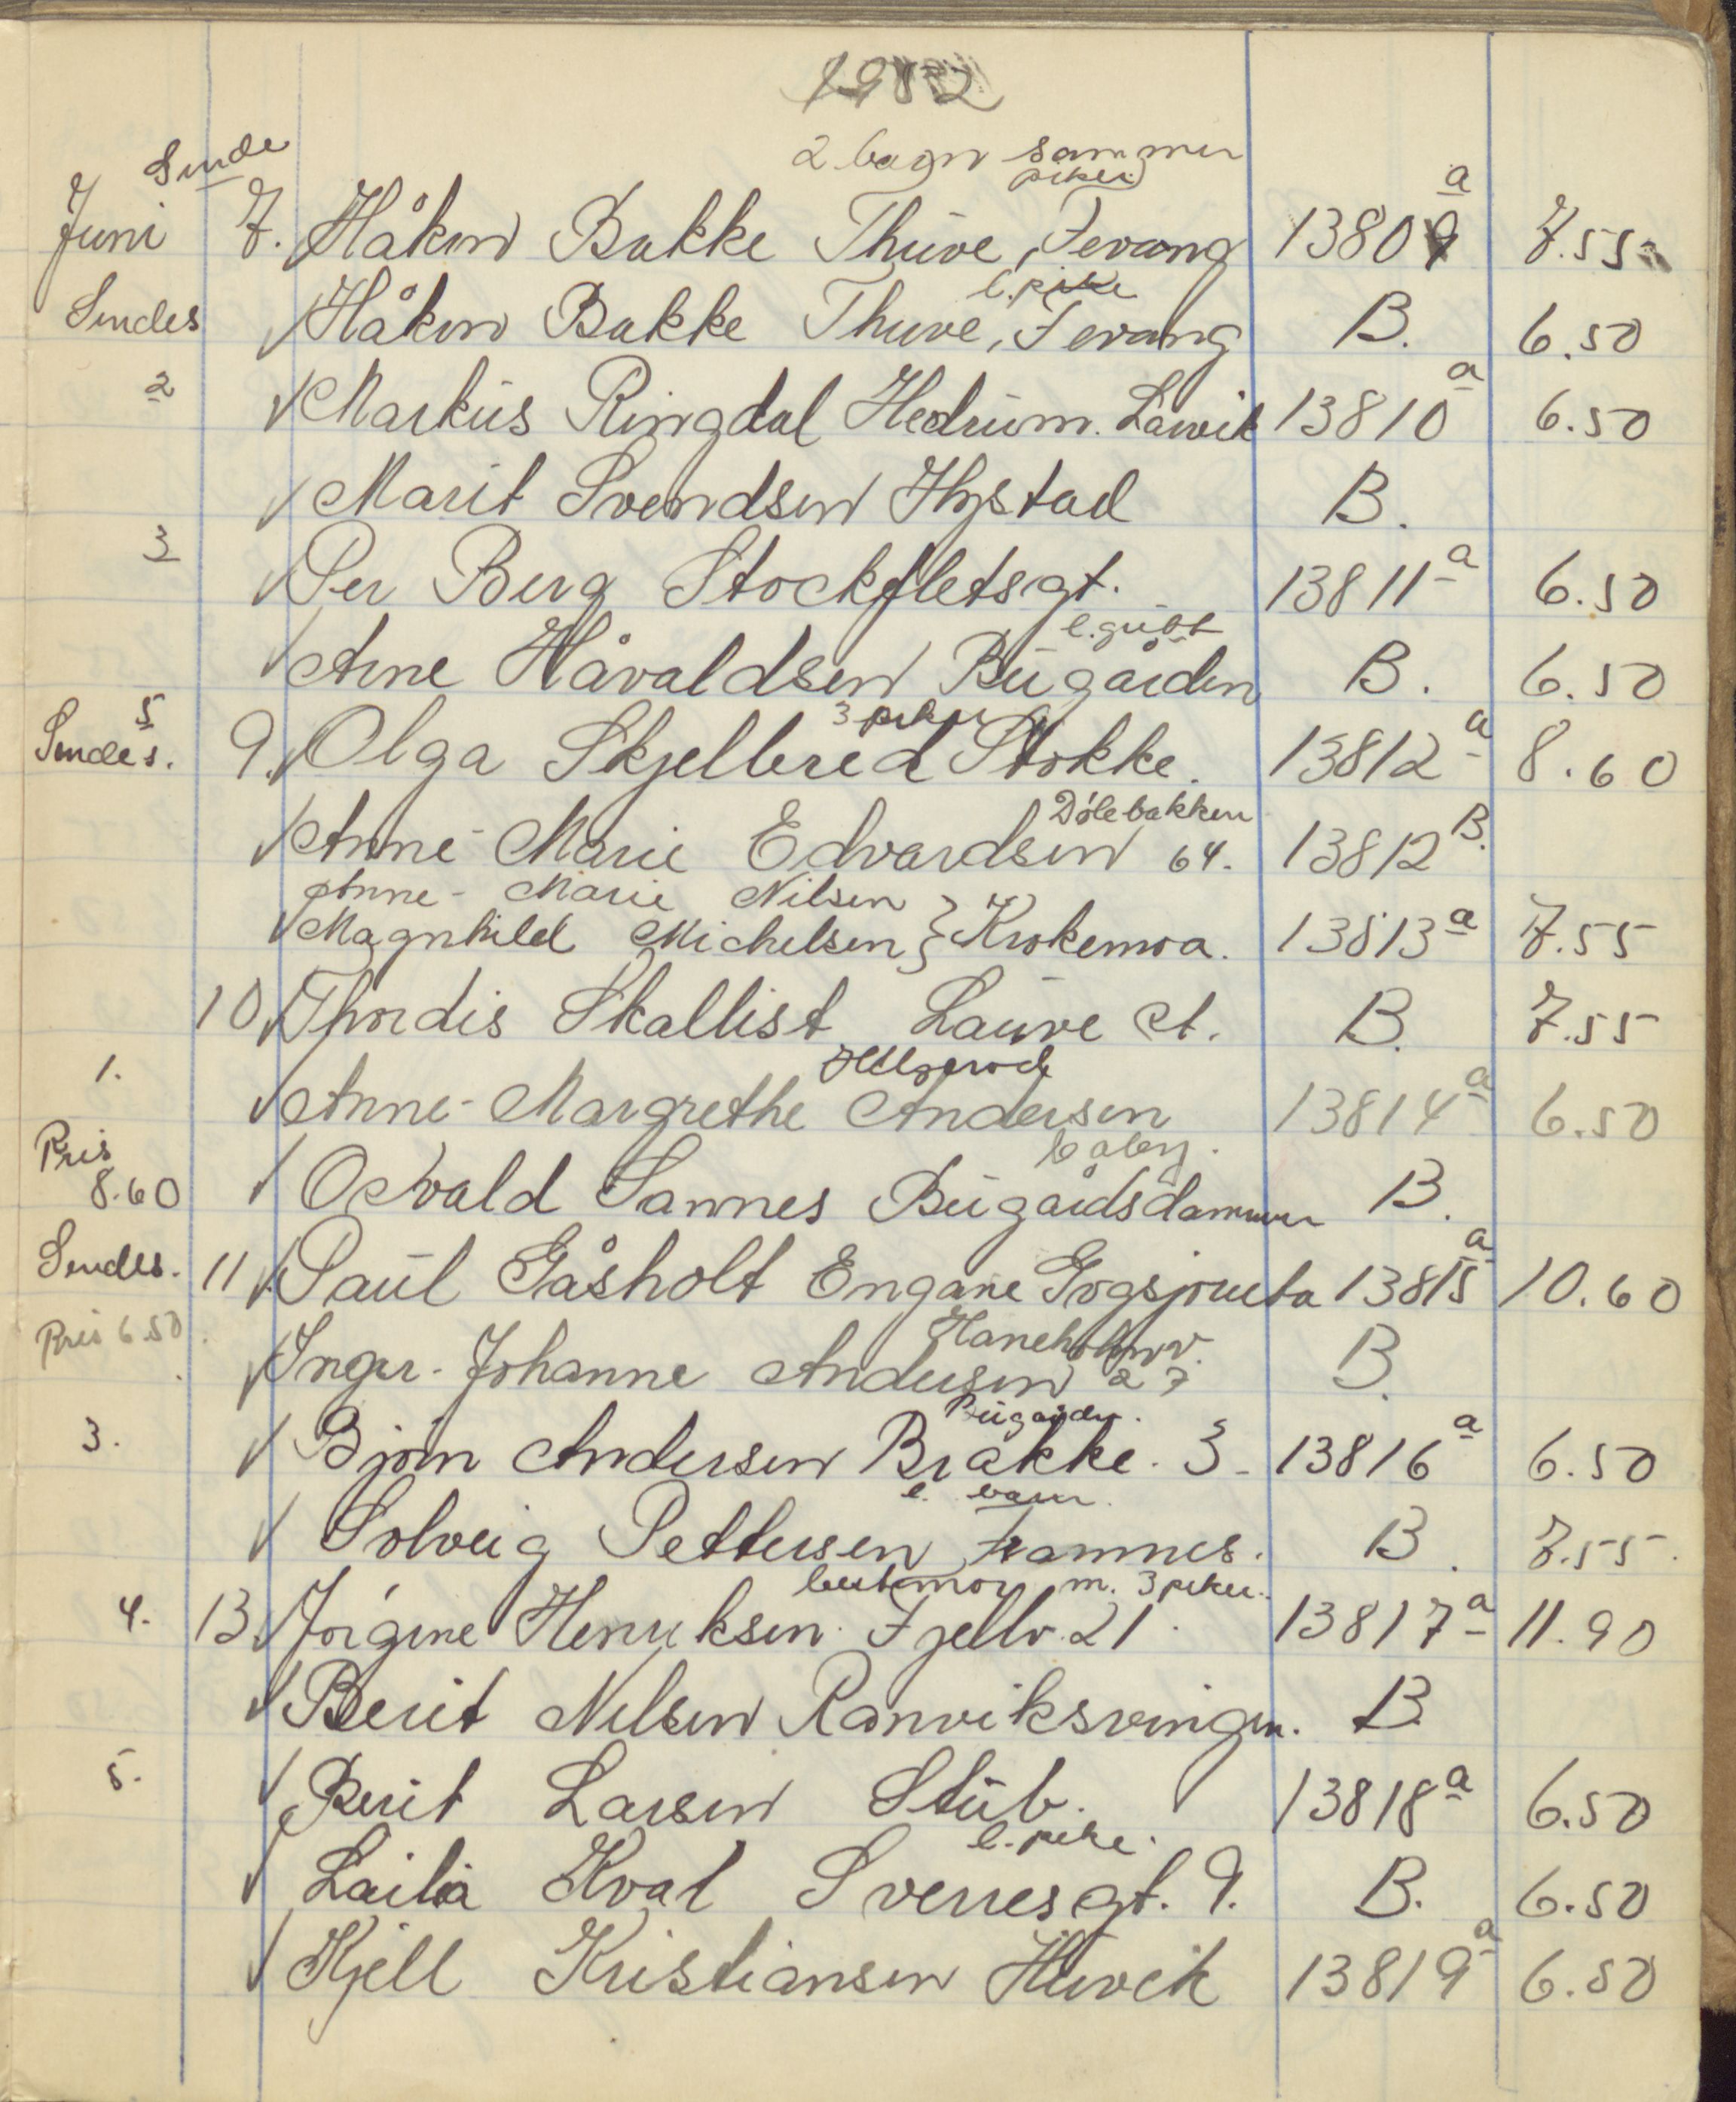 1952
2 bagn sammen
Sende piker
Juni 7. Håkon Bakke Thuve, Fevang 13809 a 7.55
l. pike
Sendes Håkon Bakke Thuve, Fevang B. 6.50
2 Markus Ringdal Hedrum. Larvik 13810 a 6.50
Marit Svendsen Hystad B.
3 Per Berg Stockfletsgt. 13811 a 6.50
l. gutt
Arne Håvaldsen Bugården B. 6.50
5 3 piker
Sendes. 9. Olga Skjellbred Stokke. 13812 a 8.60
Dølebakken
Anne-Marie Edvardsen 64. 13812 B.
Anne-Marie Nilsen
Magnhild Michelsen } Krokemoa. 13813 a 7.55
10 Thordis Skallist Lauve st. B. 7.55
Helgerød
1. Anne-Margrethe Andersen 13814 a 6.50
baby.
Pris 8.60 Osvald Sannes Bugårdsdammen B.
Sendes. 11 Paul Gåsholt Engane Gogsjø 13815 a 10.60
Haneholmv.
Pris 6.50. Inger-Johanne Andersen 27 B.
Bugården.
3. Bjørn Andersen Brakke. 3 13816 a 6.50
l. barn.
Solveig Pettersen Framnes. B. 7.55.
bestemor m. 3 piker.
4. 13. Jørgine Henriksen. Fjellv. 21. 13817 a 11.90
Berit Nilsen Ranviksvingen. B.
5. Berit Larsen Stub. 13818 a 6.50
l. pike.
Laila Kval Sverresgt. 9. B. 6.50
Kjell Kristiansen Huvik 13819 a 6.50